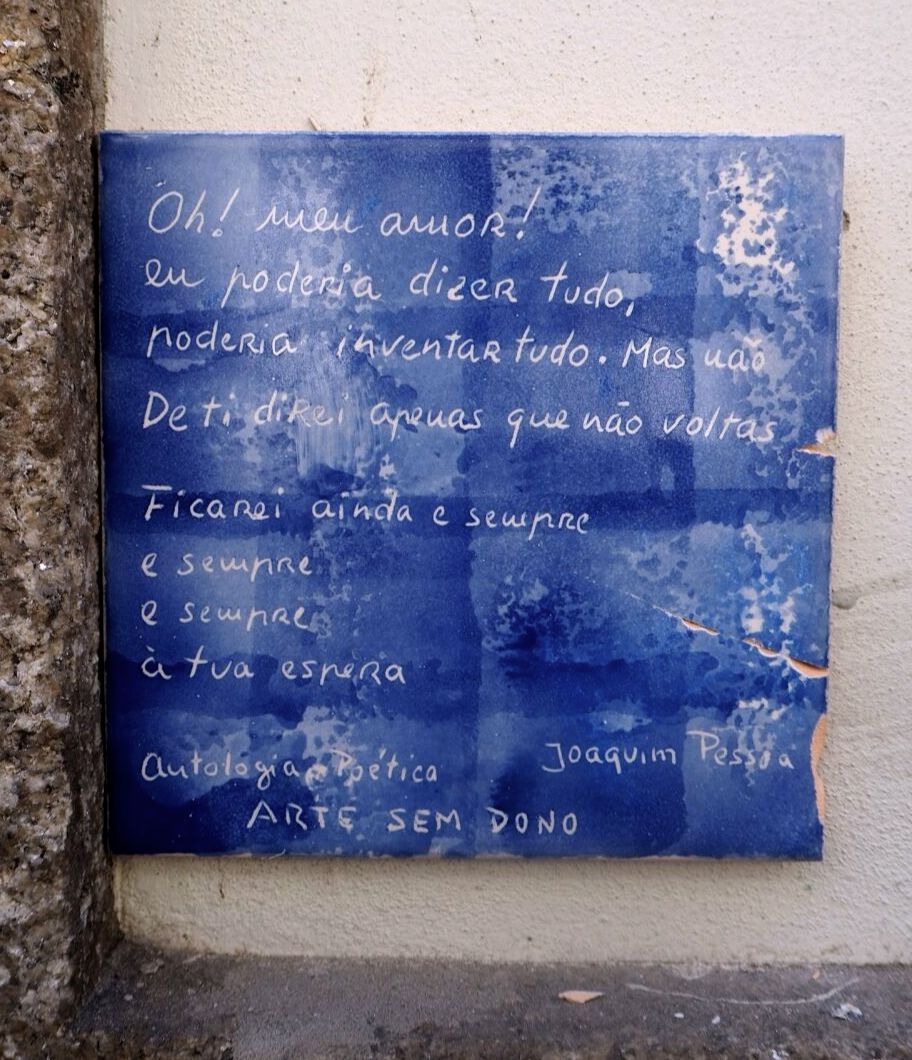 Oh! meu amor!
eu poderia dizer tudo,
poderia inventar tudo. Mas não
De ti direi apenas que não voltas
Ficarei ainda e sempre
e sempre
e sempre
à tua espera
Autologia Poética
Joaquim Pessoa
ARTE SEM DONO